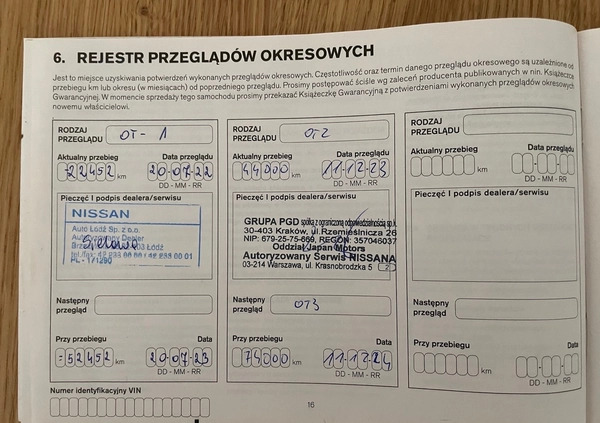 6. REJESTR PRZEGLĄDÓW OKRESOWYCH
Jest to miejsce uzyskiwania potwierdzeń wykonanych przeglądów okresowych. Częstotliwość oraz termin danego przeglądu okresowego są uzależnione od
przebiegu km lub okresu (w miesiącach) od poprzedniego przeglądu. Prosimy postępować ściśle wg zaleceń producenta publikowanych w nin. Książeczce
Gwarancyjnej. W momencie sprzedaży tego samochodu prosimy przekazać Książeczkę Gwarancyjną z potwierdzeniami wykonanych przeglądów okresowych
nowemu właścicielowi.
RODZAJ
PRZEGLĄDU OT-1
Aktualny przebieg Data przeglądu
22452 km 20-07-22
DD - MM - RR
Pieczęć I podpis dealera/serwisu
NISSAN
Auto Łódź Sp. z o.o.
Autoryzowany Dealer
Łódź
tel./fax: 42 233 00 00 / 42 233 00 01
PL - 171290
Następny
przegląd
Przy przebiegu Data
=52452 km 20-07-23
DD - MM - RR
Numer identyfikacyjny VIN
RODZAJ
PRZEGLĄDU OT2
Aktualny przebieg Data przeglądu
44000 km 11-12-23
DD - MM - RR
Pieczęć I podpis dealera/serwisu
GRUPA PGD spółka z ograniczoną odpowiedzialnością sp.k.
30-403 Kraków, ul.Rzemieślnicza 26
NIP: 679-25-75-669, REGON: 357046037
Oddział Japan Motors
Autoryzowany Serwis NISSANA
03-214 Warszawa, ul. Krasnobrodzka 5 2
Następny
przegląd OT3
Przy przebiegu Data
74000 km 11-12-24
DD - MM - RR
RODZAJ
PRZEGLĄDU
Aktualny przebieg Data przeglądu
km
DD - MM - RR
Pieczęć I podpis dealera/serwisu
Następny
przegląd
Przy przebiegu Data
km
DD - MM - RR
16